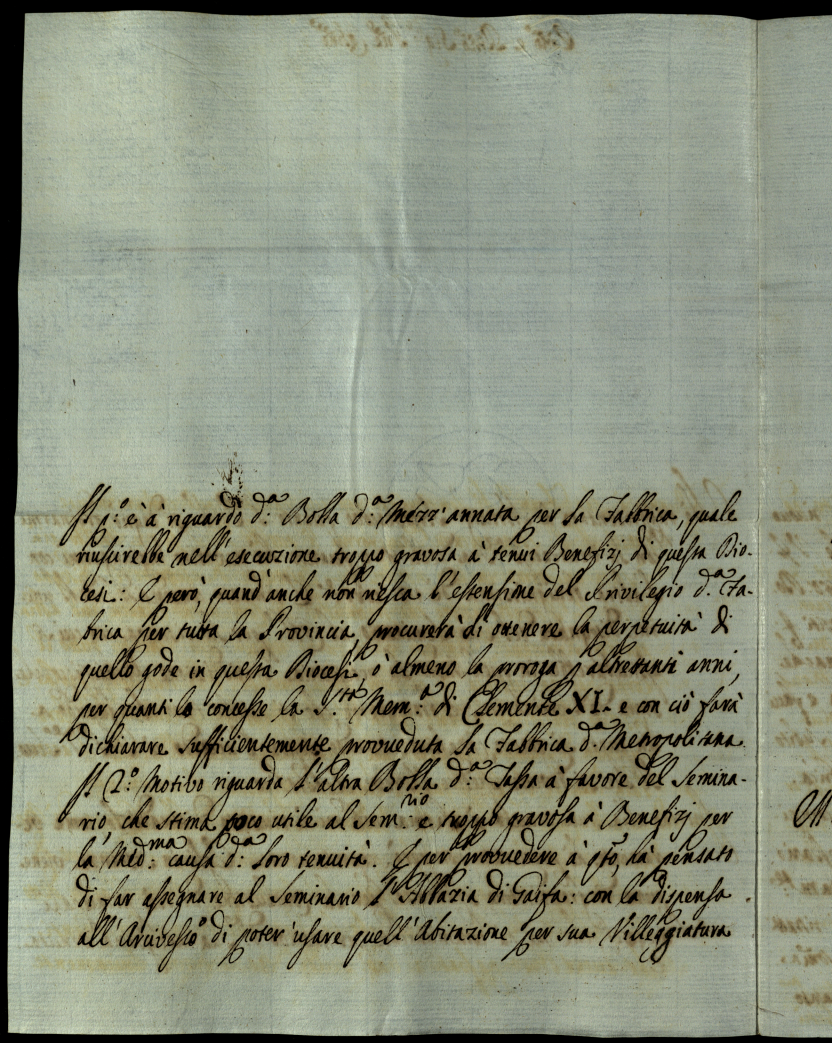 Il p.º è à riguardo d.ª Bolla d.ª Mezz'annata per la Fabbrica, quale
riuscirebbe nell'esecuzione troppo gravosa à tenui Benefizj di questa Dio-
cesi: E però, quand'anche non riesca l'estensione del Privilegio d.ª Fa-
brica per tutta la Provincia, procurerà di ottenere la perpetuità di
quello gode in questa Diocesi, ò almeno la proroga p altrettanti anni,
per quanti lo concesse la S.ta Mem.ª di Clemente XI. e con ciò farà
dichiarare sufficientemente provveduta la Fabbrica d.ª Metropolitana.
Il 2.º Motivo riguarda l'altra Bolla d.ª Tassa à favore del Semina-
rio, che stima poco utile al Sem.rio e troppo gravosa à Benefizj per
la Med.ma causa d.ª loro tenuità. E per provvedere à q.to, hà pensato
di far assegnare al Seminario l'Abbazia di Gaifa: con la dispensa
all'Arcivesco di poter'usare quell'Abitazione per sua Villeggiatura